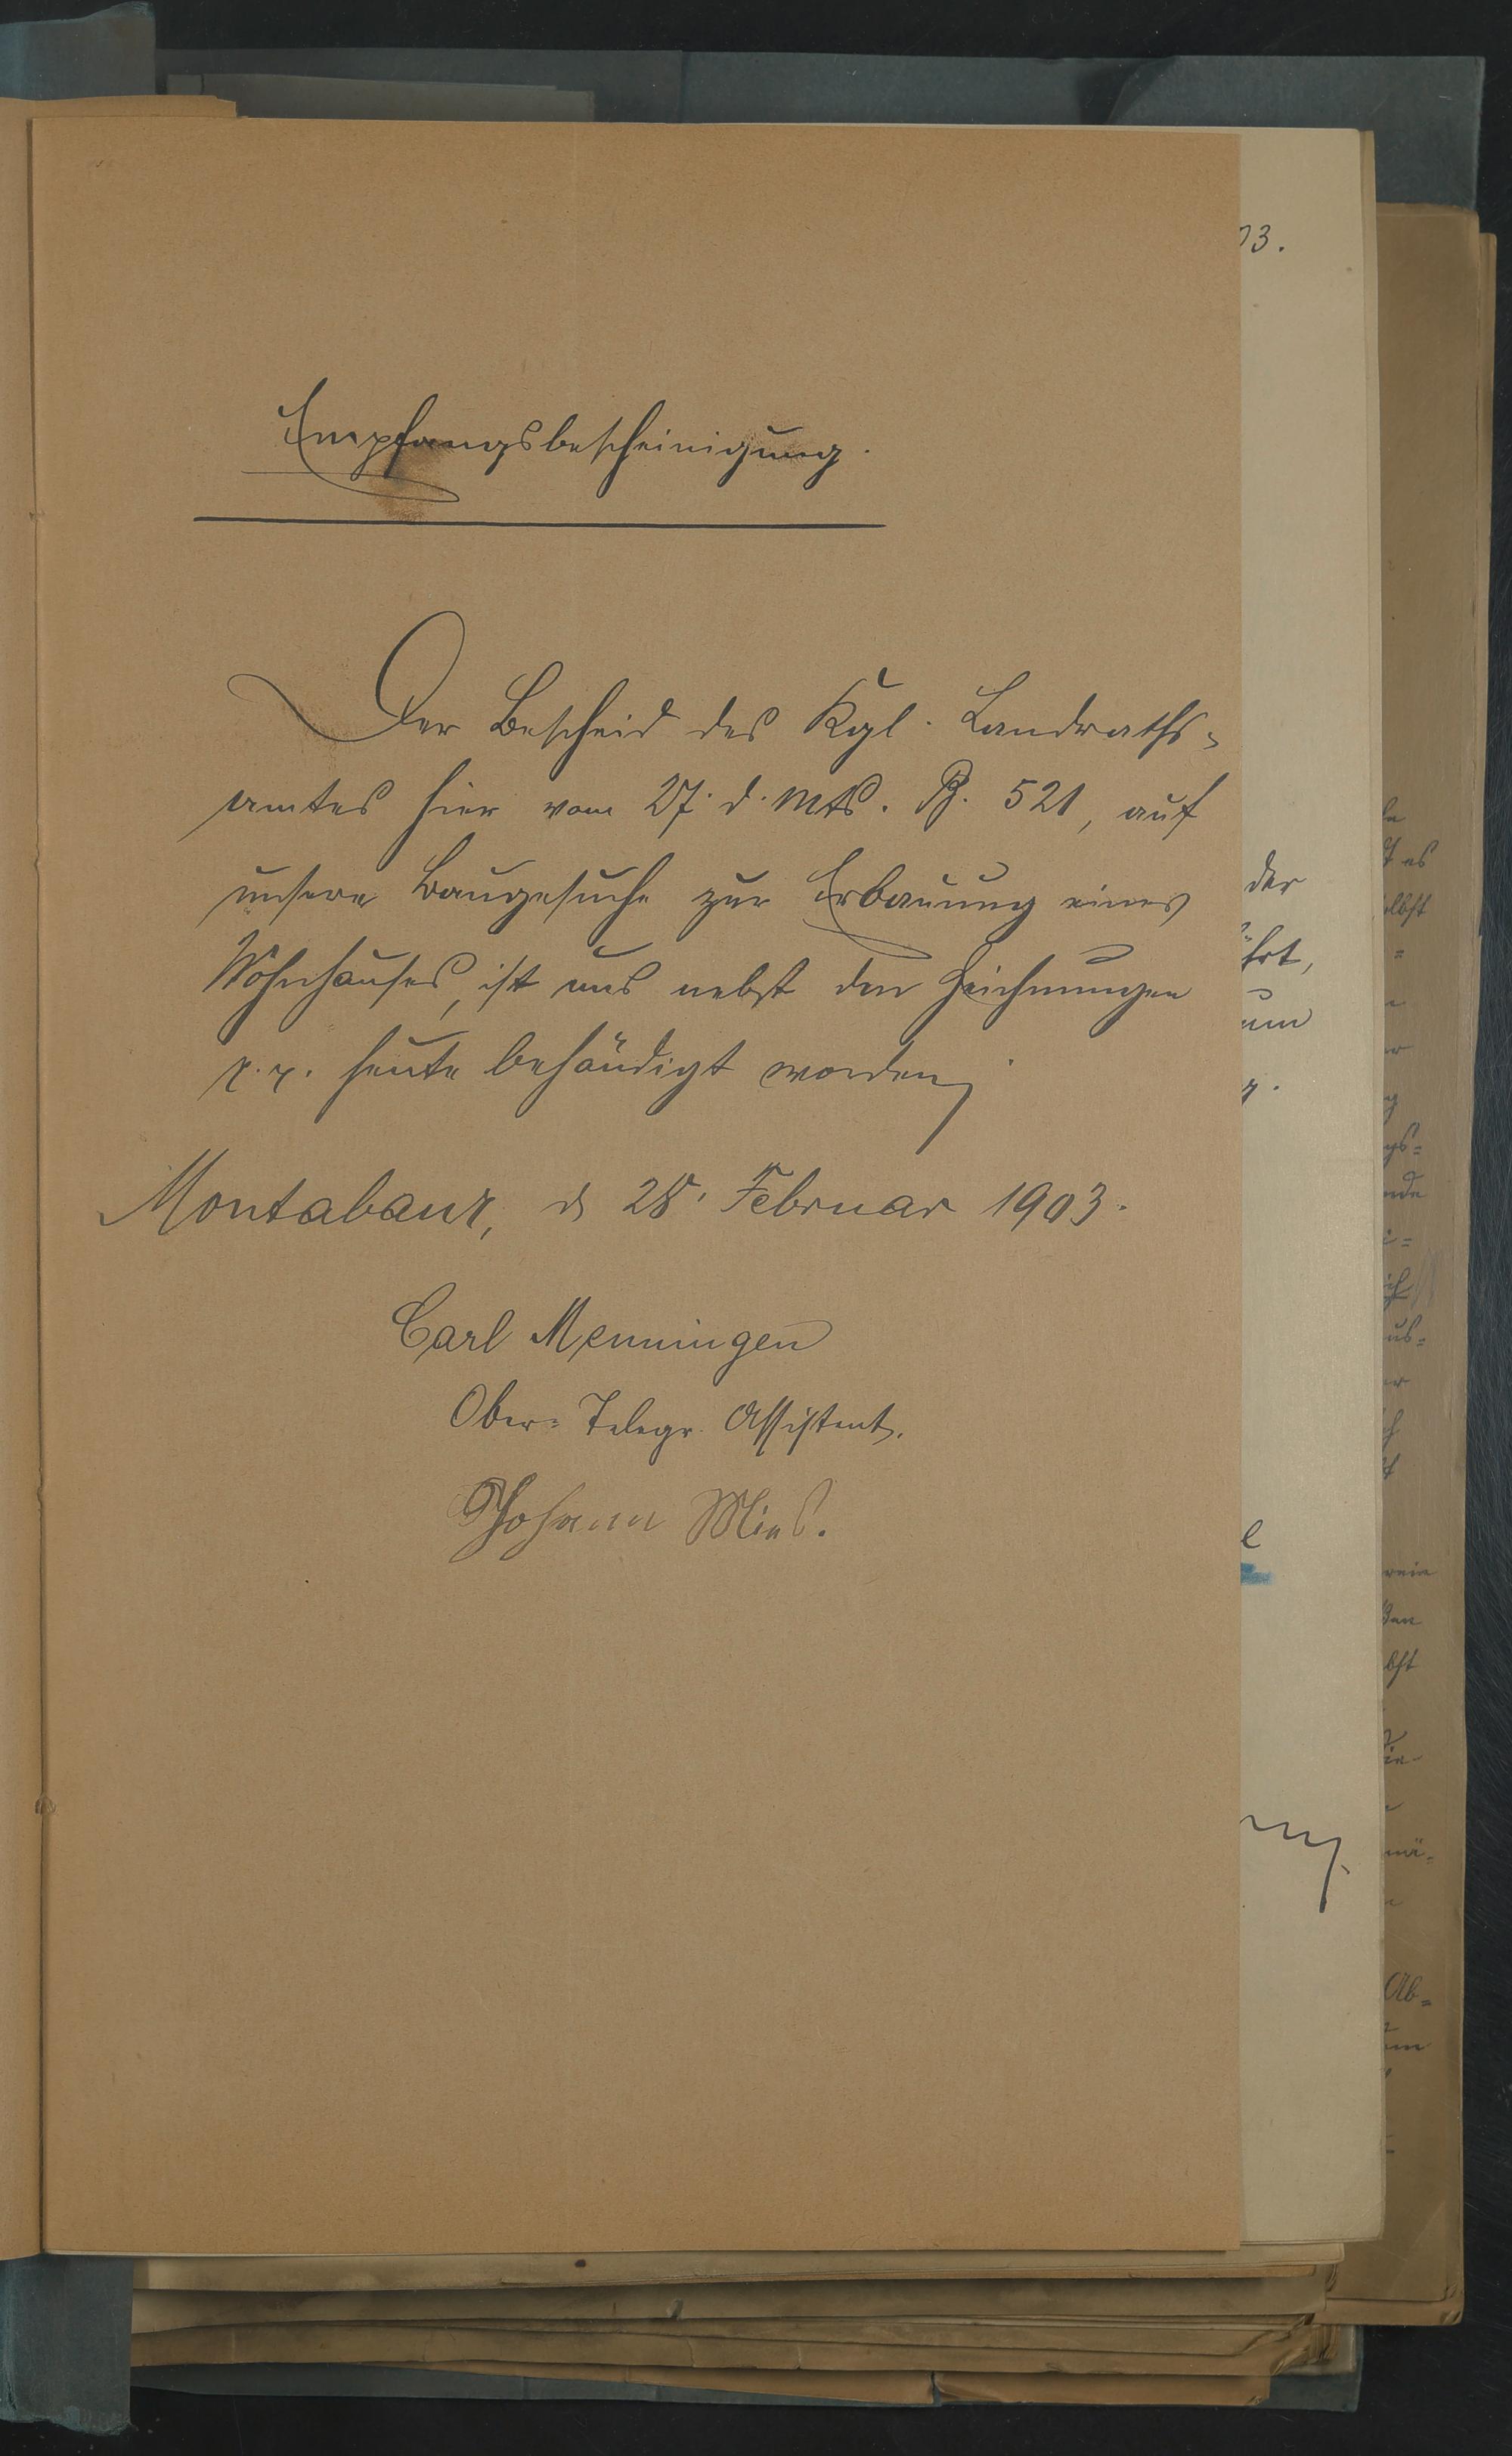 Empfangsbescheinigung.
Der Bescheid des Kgl. Landraths-
amtes hier vom 27. d. Mts. B. 521, auf
unsere Baugesuche zur Erbauung eines
Wohnhauses, ist uns nebst den Zeichnungen
p.p. heute behändigt worden.
Montabaur, d 28. Februar 1903.
Carl Menningen
Ober-Telegr. Assistent.
Johann Mies.
03.
der
um